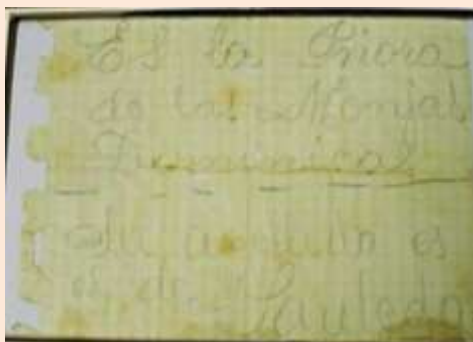 Es la Priora
de las Monjas
Dominicas
Su es
el de Sauleda